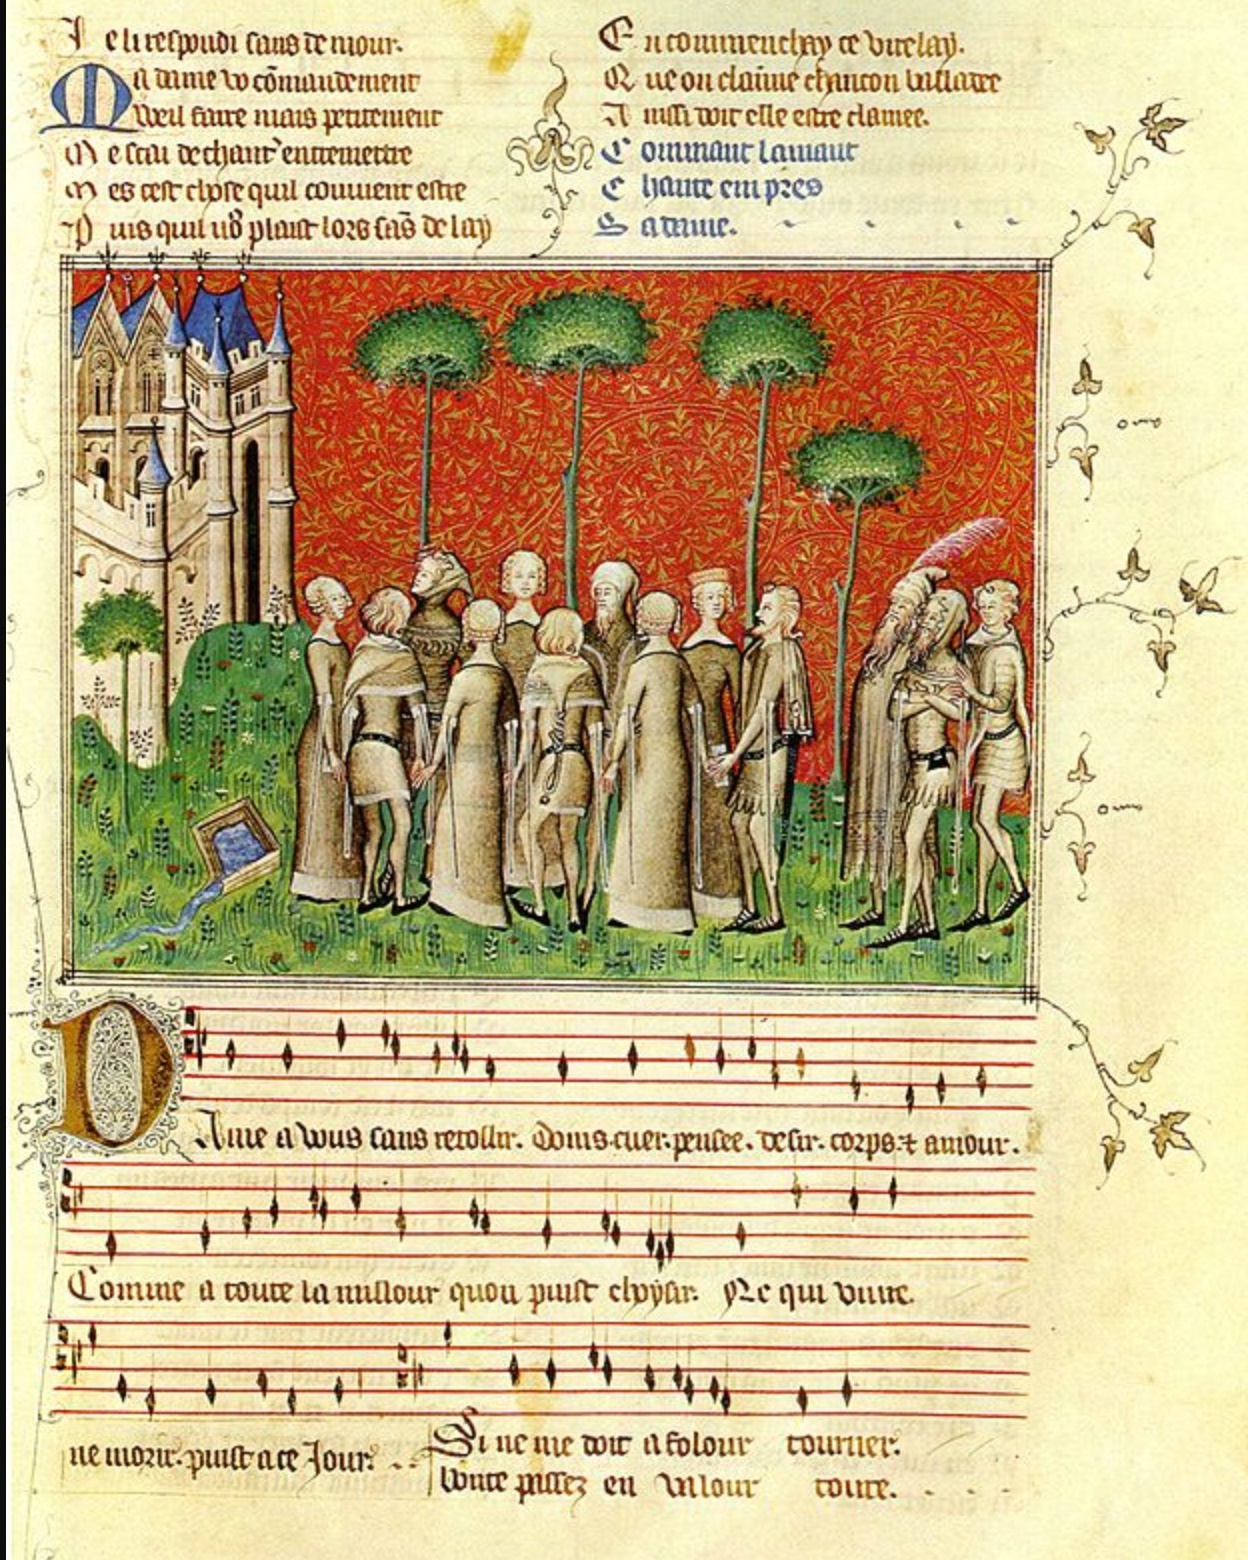 Je li respondi sans demour.
Ma dame vo cōmandement
Weil faire mais petitement
Me scai de chant entremettre
Mes cest chose quil couvient estre
Puis quil vo9 plaist lors sās delay
En commenchay ce virelay.
Que on claimme chancon balladee
Ainssi doit elle estre clamee.
Comment lamant
Chante empres
Sa dame.
Dame a vous sans retollir. Doins cuer. pensee. desir. corps ⁊ amour.
Comme a toute la millour quon puist choysir. Ne qui vivre.
ne morir. puist a ce Jour.
Si ne me doit a folour tourner.
bonte passez en valour toute.